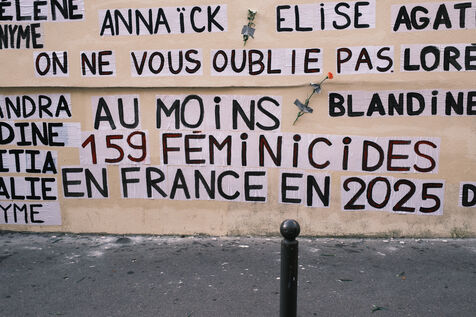 HÉLÈNE ANNAÏCK ELISE AGAT
NYME
ON NE VOUS OUBLIE PAS. LORE
ANDRA AU MOINS BLANDINE
DINE 159 FÉMINICIDES
TITIA
ALIE EN FRANCE EN 2025 D
YME